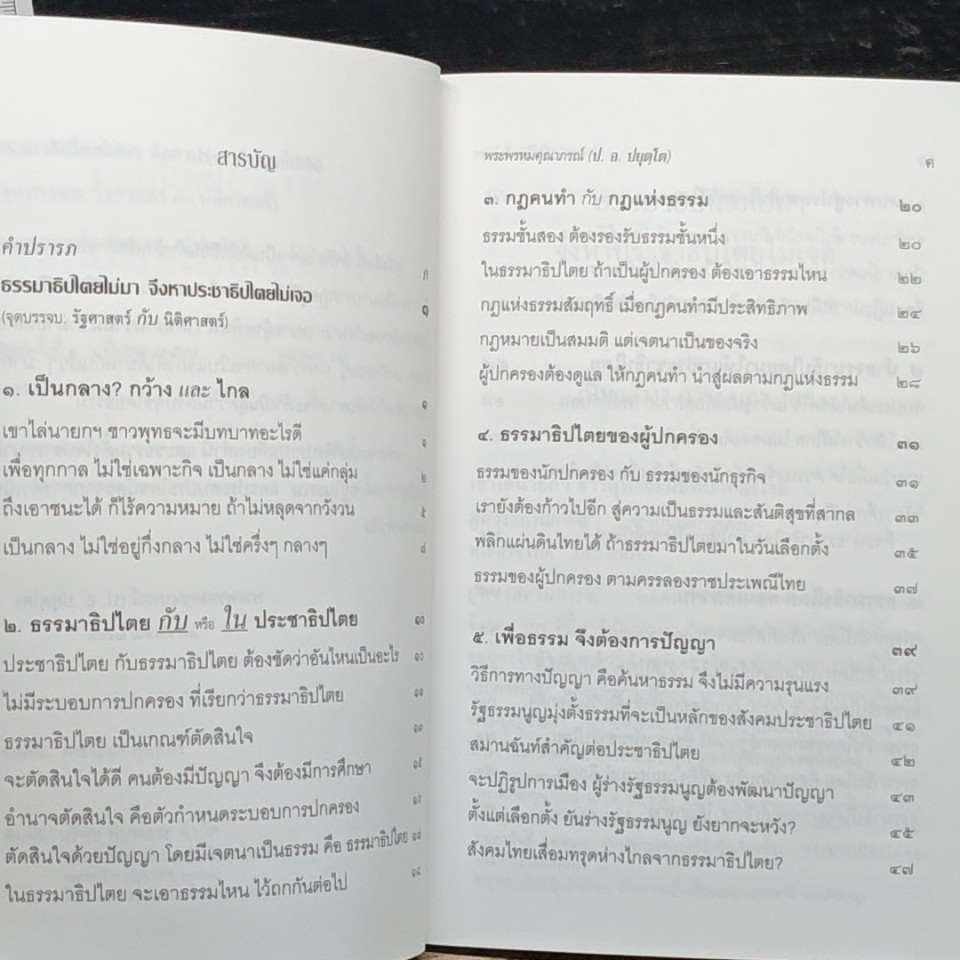 สารบัญ
คำปรารภ ก
ธรรมาธิปไตยไม่มา จึงหาประชาธิปไตยไม่เจอ ๑
(จุดบรรจบ: รัฐศาสตร์ กับ นิติศาสตร์)
๑. เป็นกลาง? กว้าง และ ไกล ๑
เขาไล่นายกฯ ชาวพุทธจะมีบทบาทอะไรดี ๑
เพื่อทุกกาล ไม่ใช่เฉพาะกิจ เป็นกลาง ไม่ใช่แค่กลุ่ม ๒
ถึงเอาชนะได้ ก็ไร้ความหมาย ถ้าไม่หลุดจากวังวน ๕
เป็นกลาง ไม่ใช่อยู่กึ่งกลาง ไม่ใช่ครึ่งๆ กลางๆ ๘
๒. ธรรมาธิปไตย กับ หรือ ใน ประชาธิปไตย ๑๐
ประชาธิปไตย กับธรรมาธิปไตย ต้องชัดว่าอันไหนเป็นอะไร ๑๐
ไม่มีระบอบการปกครอง ที่เรียกว่าธรรมาธิปไตย ๑๑
ธรรมาธิปไตย เป็นเกณฑ์ตัดสินใจ
จะตัดสินใจได้ดี คนต้องมีปัญญา จึงต้องมีการศึกษา ๑๕
อำนาจตัดสินใจ คือตัวกำหนดระบอบการปกครอง
ตัดสินใจด้วยปัญญา โดยมีเจตนาเป็นธรรม คือ ธรรมาธิปไตย
ในธรรมาธิปไตย จะเอาธรรมไหน ไว้ถกกันต่อไป ๑๘
พระพรหมคุณาภรณ์ (ป. อ. ปยุตฺโต) ค
๓. กฎคนทำ กับ กฎแห่งธรรม ๒๐
ธรรมชั้นสอง ต้องรองรับธรรมชั้นหนึ่ง ๒๐
ในธรรมาธิปไตย ถ้าเป็นผู้ปกครอง ต้องเอาธรรมไหน ๒๒
กฎแห่งธรรมสัมฤทธิ์ เมื่อกฎคนทำมีประสิทธิภาพ ๒๔
กฎหมายเป็นสมมติ แต่เจตนาเป็นของจริง ๒๖
ผู้ปกครองต้องดูแล ให้กฎคนทำ นำสู่ผลตามกฎแห่งธรรม ๒๘
๔. ธรรมาธิปไตยของผู้ปกครอง ๓๑
ธรรมของนักปกครอง กับ ธรรมของนักธุรกิจ ๓๑
เรายังต้องก้าวไปอีก สู่ความเป็นธรรมและสันติสุขที่สากล ๓๓
พลิกแผ่นดินไทยได้ ถ้าธรรมาธิปไตยมาในวันเลือกตั้ง ๓๕
ธรรมของผู้ปกครอง ตามครรลองราชประเพณีไทย ๓๗
๕. เพื่อธรรม จึงต้องการปัญญา ๓๙
วิธีการทางปัญญา คือค้นหาธรรม จึงไม่มีความรุนแรง ๓๙
รัฐธรรมนูญมุ่งตั้งธรรมที่จะเป็นหลักของสังคมประชาธิปไตย ๔๑
สมานฉันท์สำคัญต่อประชาธิปไตย ๔๒
จะปฏิรูปการเมือง ผู้ร่างรัฐธรรมนูญต้องพัฒนาปัญญา ๔๓
ตั้งแต่เลือกตั้ง ยันร่างรัฐธรรมนูญ ยังยากจะหวัง? ๔๕
สังคมไทยเสื่อมทรุดห่างไกลจากธรรมาธิปไตย? ๔๗